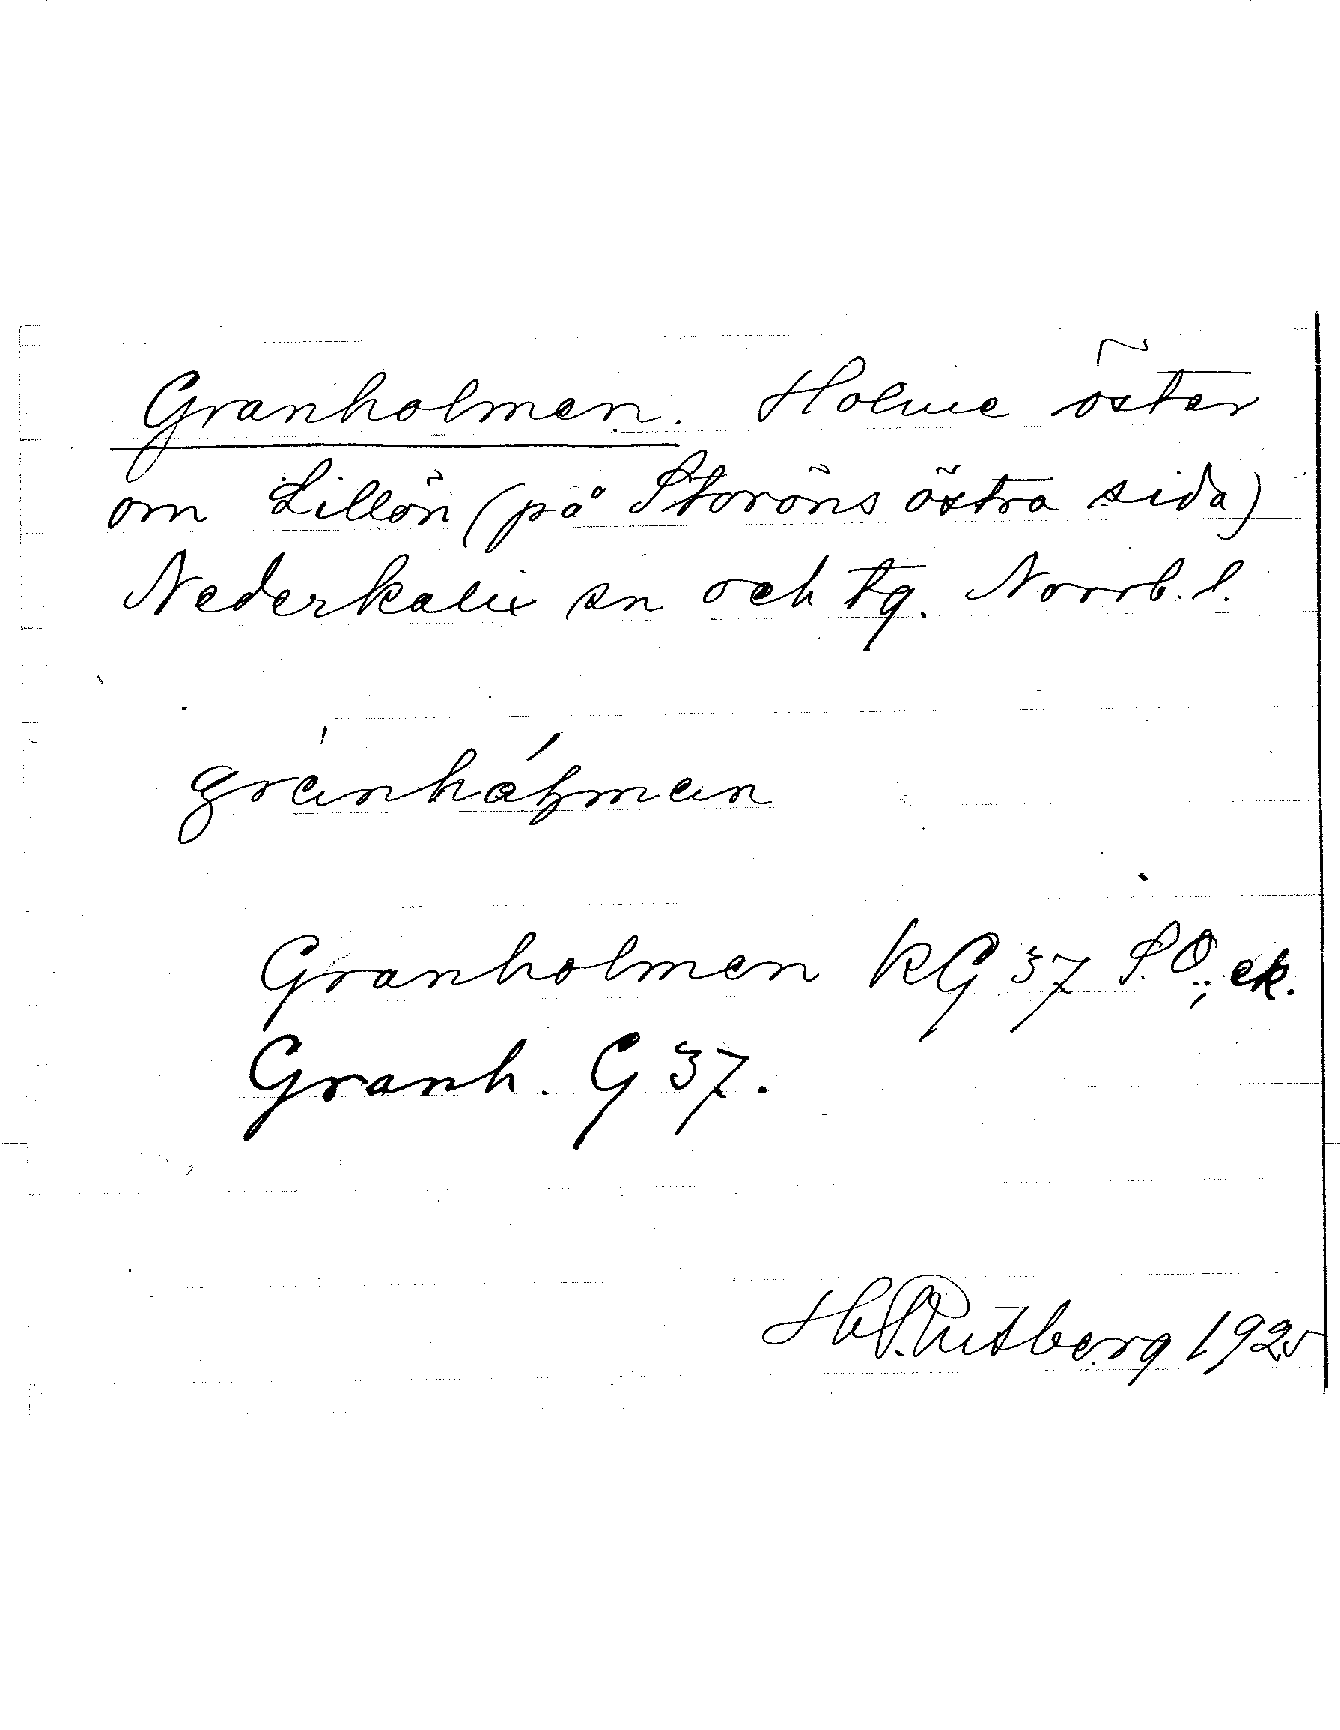 Granholmen. Holme öster
om Lillön (på Storöns östra sida)
Nederkalix sn och tg. Norrb. l.
Granholmen KG 37 S.O.; ek.
Granh. G 37.
1925